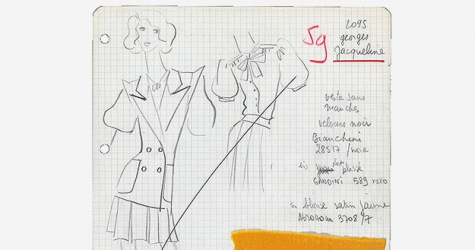 59
2095
georges
Jacqueline
veste sans
manches
velours noir
Bianchini
28517 / noir
plissé
GANDINI 589
blouse satin jaune
Abraham 3708/7